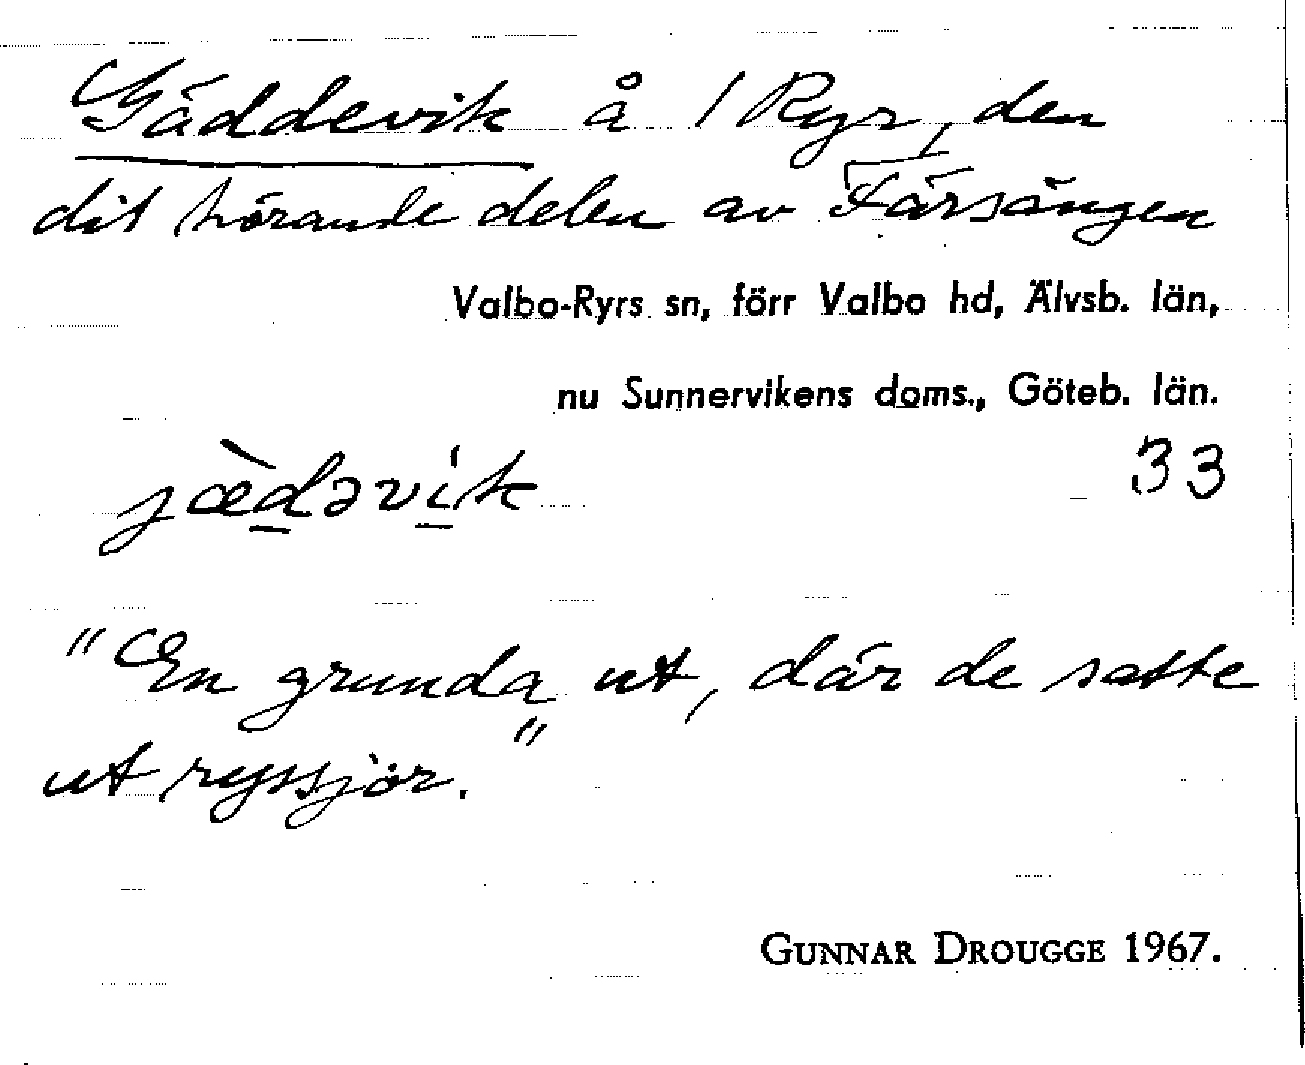 Gäddevik å 1 Ryr, den
dit hörande delen av Färsängen
Valbo-Ryrs sn, förr Valbo hd, Älvsb. län,
nu Sunnervikens doms., Göteb. län.
jæ̀dəvik 33
"En grunda ut, där de satte
ut ryssjör."
GUNNAR DROUGGE 1967.